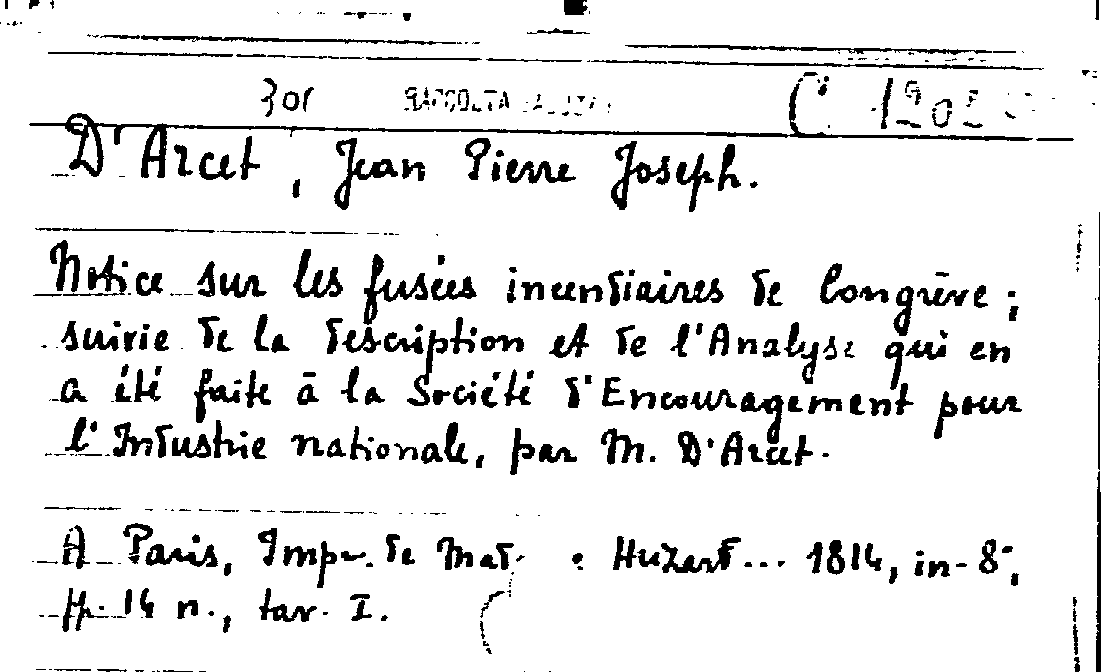 301 RACCOLTA
D'Arcet, Jean Pierre Joseph.
Notice sur les fusées incendiaires de Congrève;
suivie de la description et de l'Analyse qui en
a été faite à la Société d'Encouragement pour
l'Industrie nationale, par M. D'Arcet.
A Paris, Impr. de Mad.e Huzard... 1814, in-8°,
pp. 14 n., tav. I.